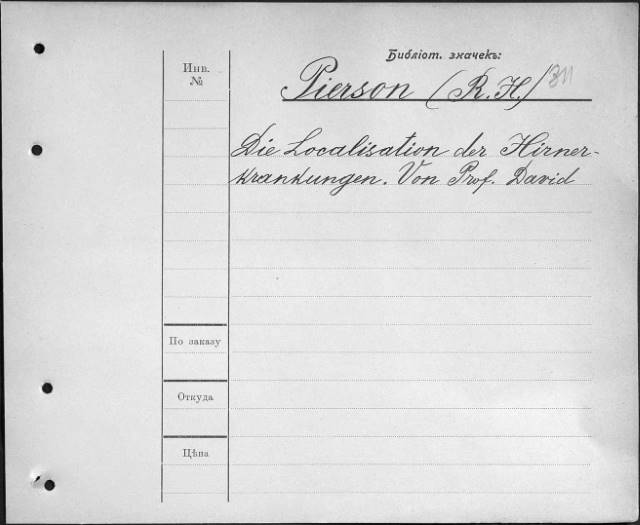 Библіот. значекъ:
Инв.
№
Pierson (R. H.)
Die Localisation der Hirner-
krankungen. Von Prof. David
По заказу
Откуда
Цѣна